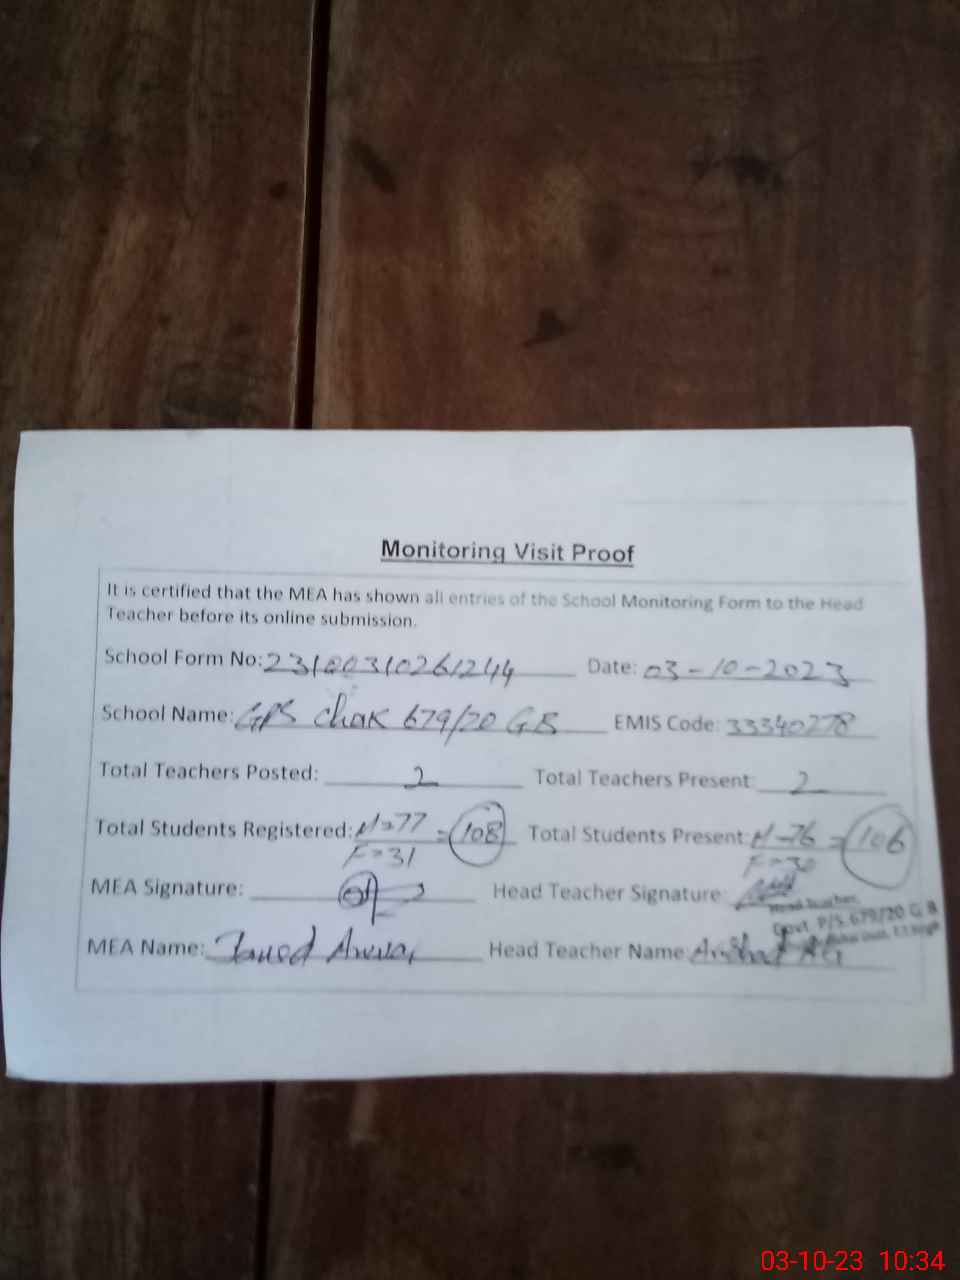 Monitoring Visit Proof
It is certified that the MEA has shown all entries of the School Monitoring Form to the Head
Teacher before its online submission.
School Form No: 23100310261244 Date: 03-10-2023
School Name: GPS Chak 679/20 GB EMIS Code: 33340278
Total Teachers Posted: 2 Total Teachers Present: 2
Total Students Registered: M=77 = 108 Total Students Present: M-76 = 106
F=31 F=30
MEA Signature: Head Teacher Signature:
Head Teacher
Govt. P/S 679/20 G.B
MEA Name: Javed Anwar Head Teacher Name: Ali
03-10-23 10:34